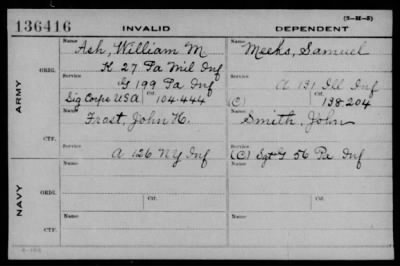 (3-H-5)
136416 INVALID DEPENDENT
ARMY
ORIG.
Name Ash, William M
K 27 Pa Mil Inf
Service G 199 Pa Inf
Sig Corps USA Ctf. 104-444
Name Meeks, Samuel
Service A 131 Ill Inf
(C) Ctf. 138-204
CTF.
Name Frost, John H.
Service A 126 NY Inf
Name Smith, John
Service (C) Sgt G 56 Pa Inf
NAVY
ORIG.
Name
Service
Ctf.
Name
Service
Ctf.
CTF.
Name
Service
Name
Service